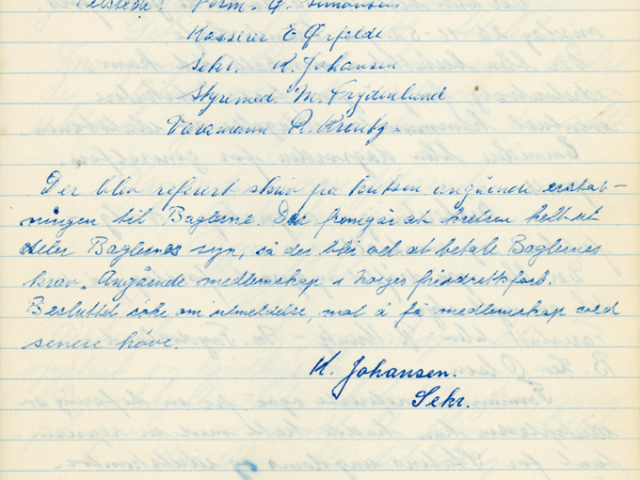 Tilstede: Form. G. Simonsen
Kasserer E Ørfelde
Sekr. K. Johansen
Styremed. M. Frydenlund
Varamann R. Krentz.
Der blev referert skriv fra kretsen angående erstat-
ningen til Baglerne. Det fremgår at kretsen helt ut
deler Baglernes syn, så der ble vedt. at betale Baglernes
krav. Angående medlemskap i Norges friidrettsforb.
Besluttet søke om utmeldelse, mot å få medlemskap ved
senere høve.
K. Johansen.
Sekr.